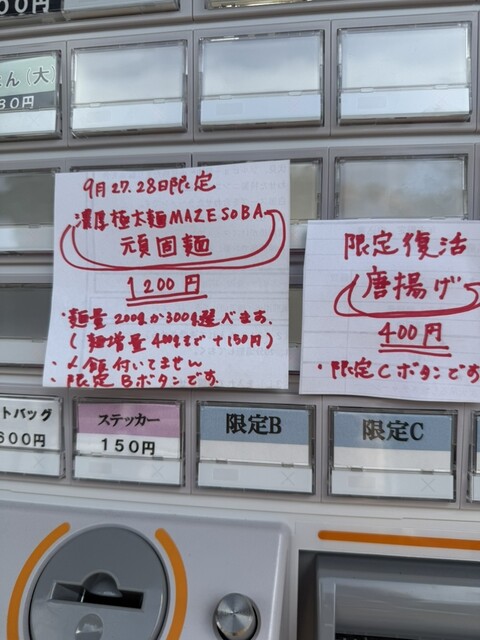 00円
ん(大)
30円
9月27.28日限定
濃厚極太麺MAZESOBA
頑固麺
1200円
・麺量200gか300g選べます。
(麺増量400gまで+150円)
・〆飯付いてません
・限定Bボタンです。
限定復活
唐揚げ
400円
・限定Cボタンです
トバッグ
600円
ステッカー
150円
限定B
限定C